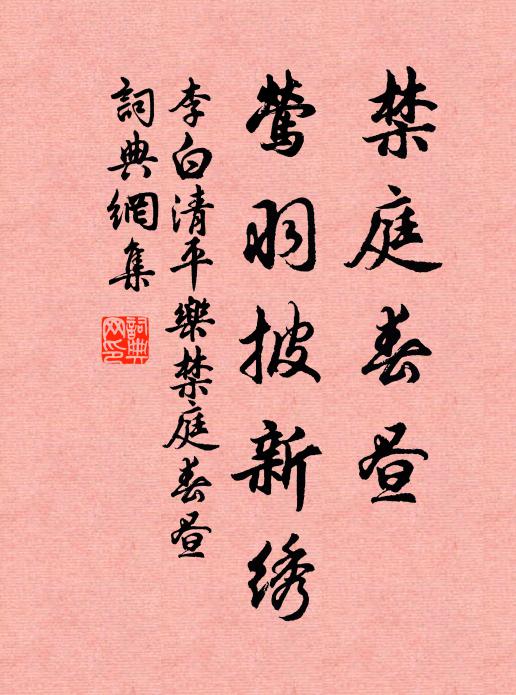 禁庭春昼
莺羽披新绣
李白清平樂禁庭春昼
詞典網集
詞典網印